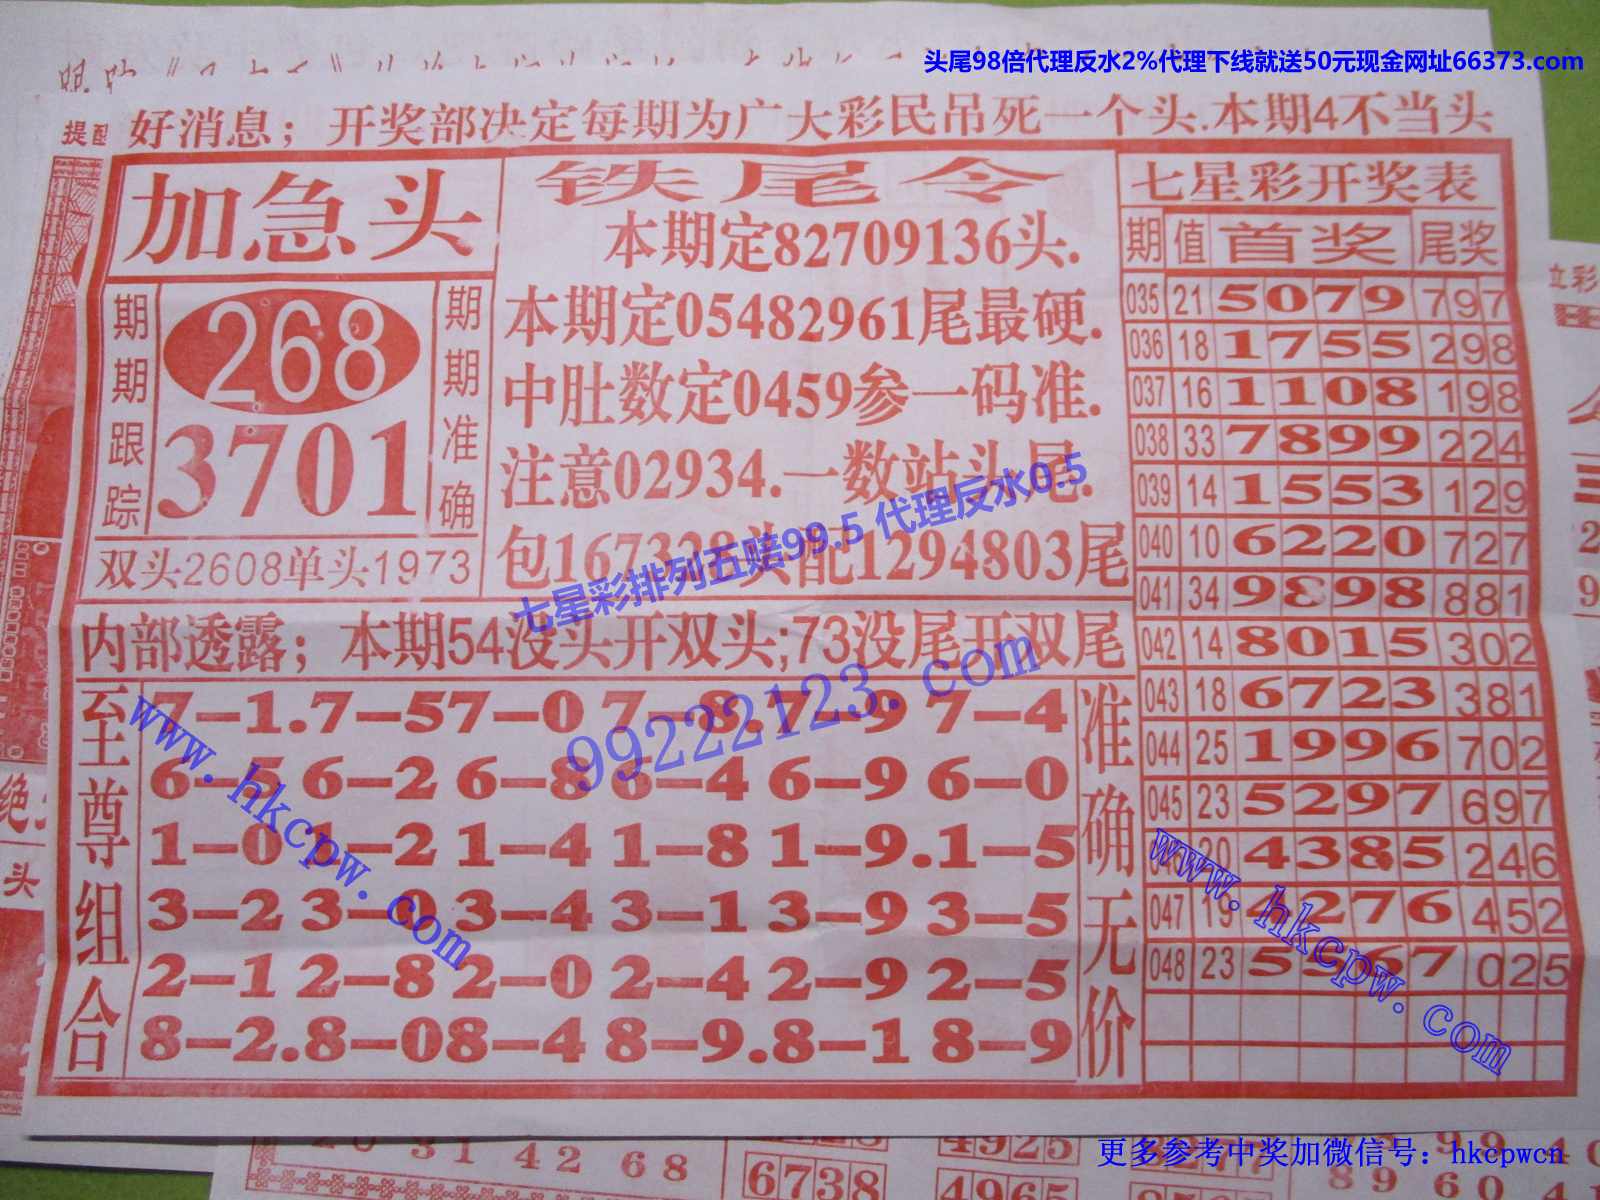 头尾98倍代理反水2%代理下线就送50元现金网址66373.com
提醒
好消息；开奖部决定每期为广大彩民吊死一个头.本期4不当头
加急头
期期跟踪
268
3701
期期准确
双头2608单头1973
铁尾令
本期定82709136头.
本期定05482961尾最硬.
中肚数定0459参一码准.
注意02934.一数站头尾.
包167328头配1294803尾
七星彩排列五赔99.5 代理反水0.5
内部透露；本期54没头开双头;73没尾开双尾
99222123.com
至尊组合
7—1.7—57—0 7—8.7—9 7—4
6—5 6—2 6—8 6—4 6—9 6—0
1—0 1—2 1—4 1—8 1—9.1—5
3—2 3—0 3—4 3—1 3—9 3—5
2—1 2—8 2—0 2—4 2—9 2—5
8—2.8—08—4 8—9.8—1 8—9
准确无价
www.hkcpw.com
七星彩开奖表
期 值 首奖 尾奖
035 21 5079 797
036 18 1755 298
037 16 1108 198
038 33 7899 224
039 14 1553 129
040 10 6220 727
041 34 9898 881
042 14 8015 302
043 18 6723 381
044 25 1996 702
045 23 5297 697
20 4385 246
047 19 4276 452
048 23 5567 025
www.hkcpw.com
立彩
绝
头
20 31 42 68
4925
6738
4965
89 60
更多参考中奖加微信号：hkcpwcn